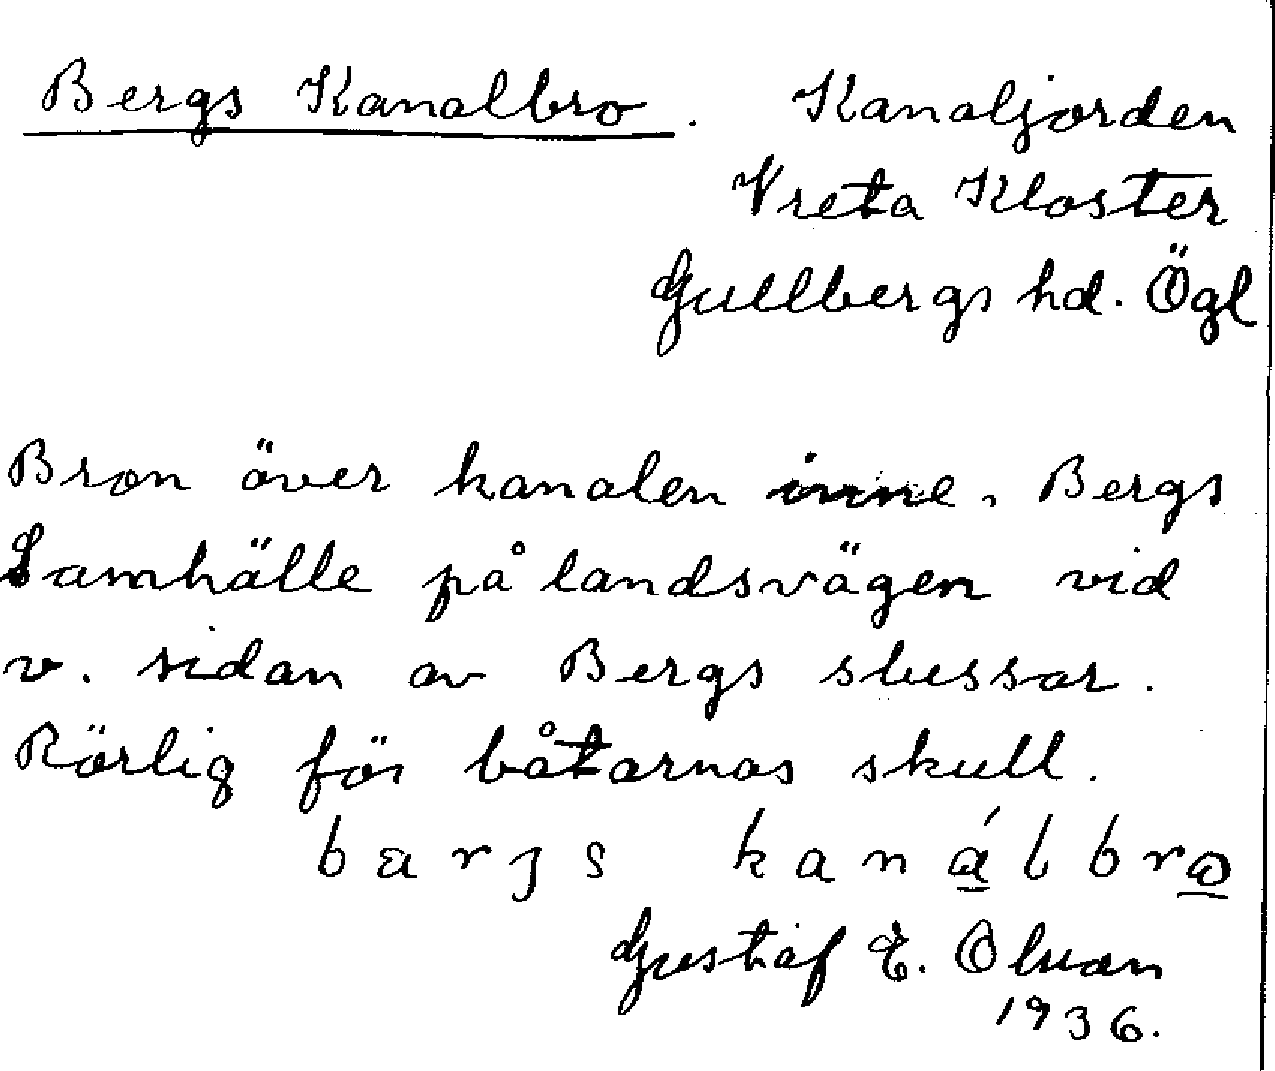 Bergs Kanalbro. Kanaljorden
Vreta Kloster
Gullbergs hd. Ögl
Bron över kanalen inne i Bergs
Samhälle på landsvägen vid
v. sidan av Bergs slussar.
Rörlig för båtarnas skull.
bærjs kanálbro
Gustaf E. Olsson
1936.